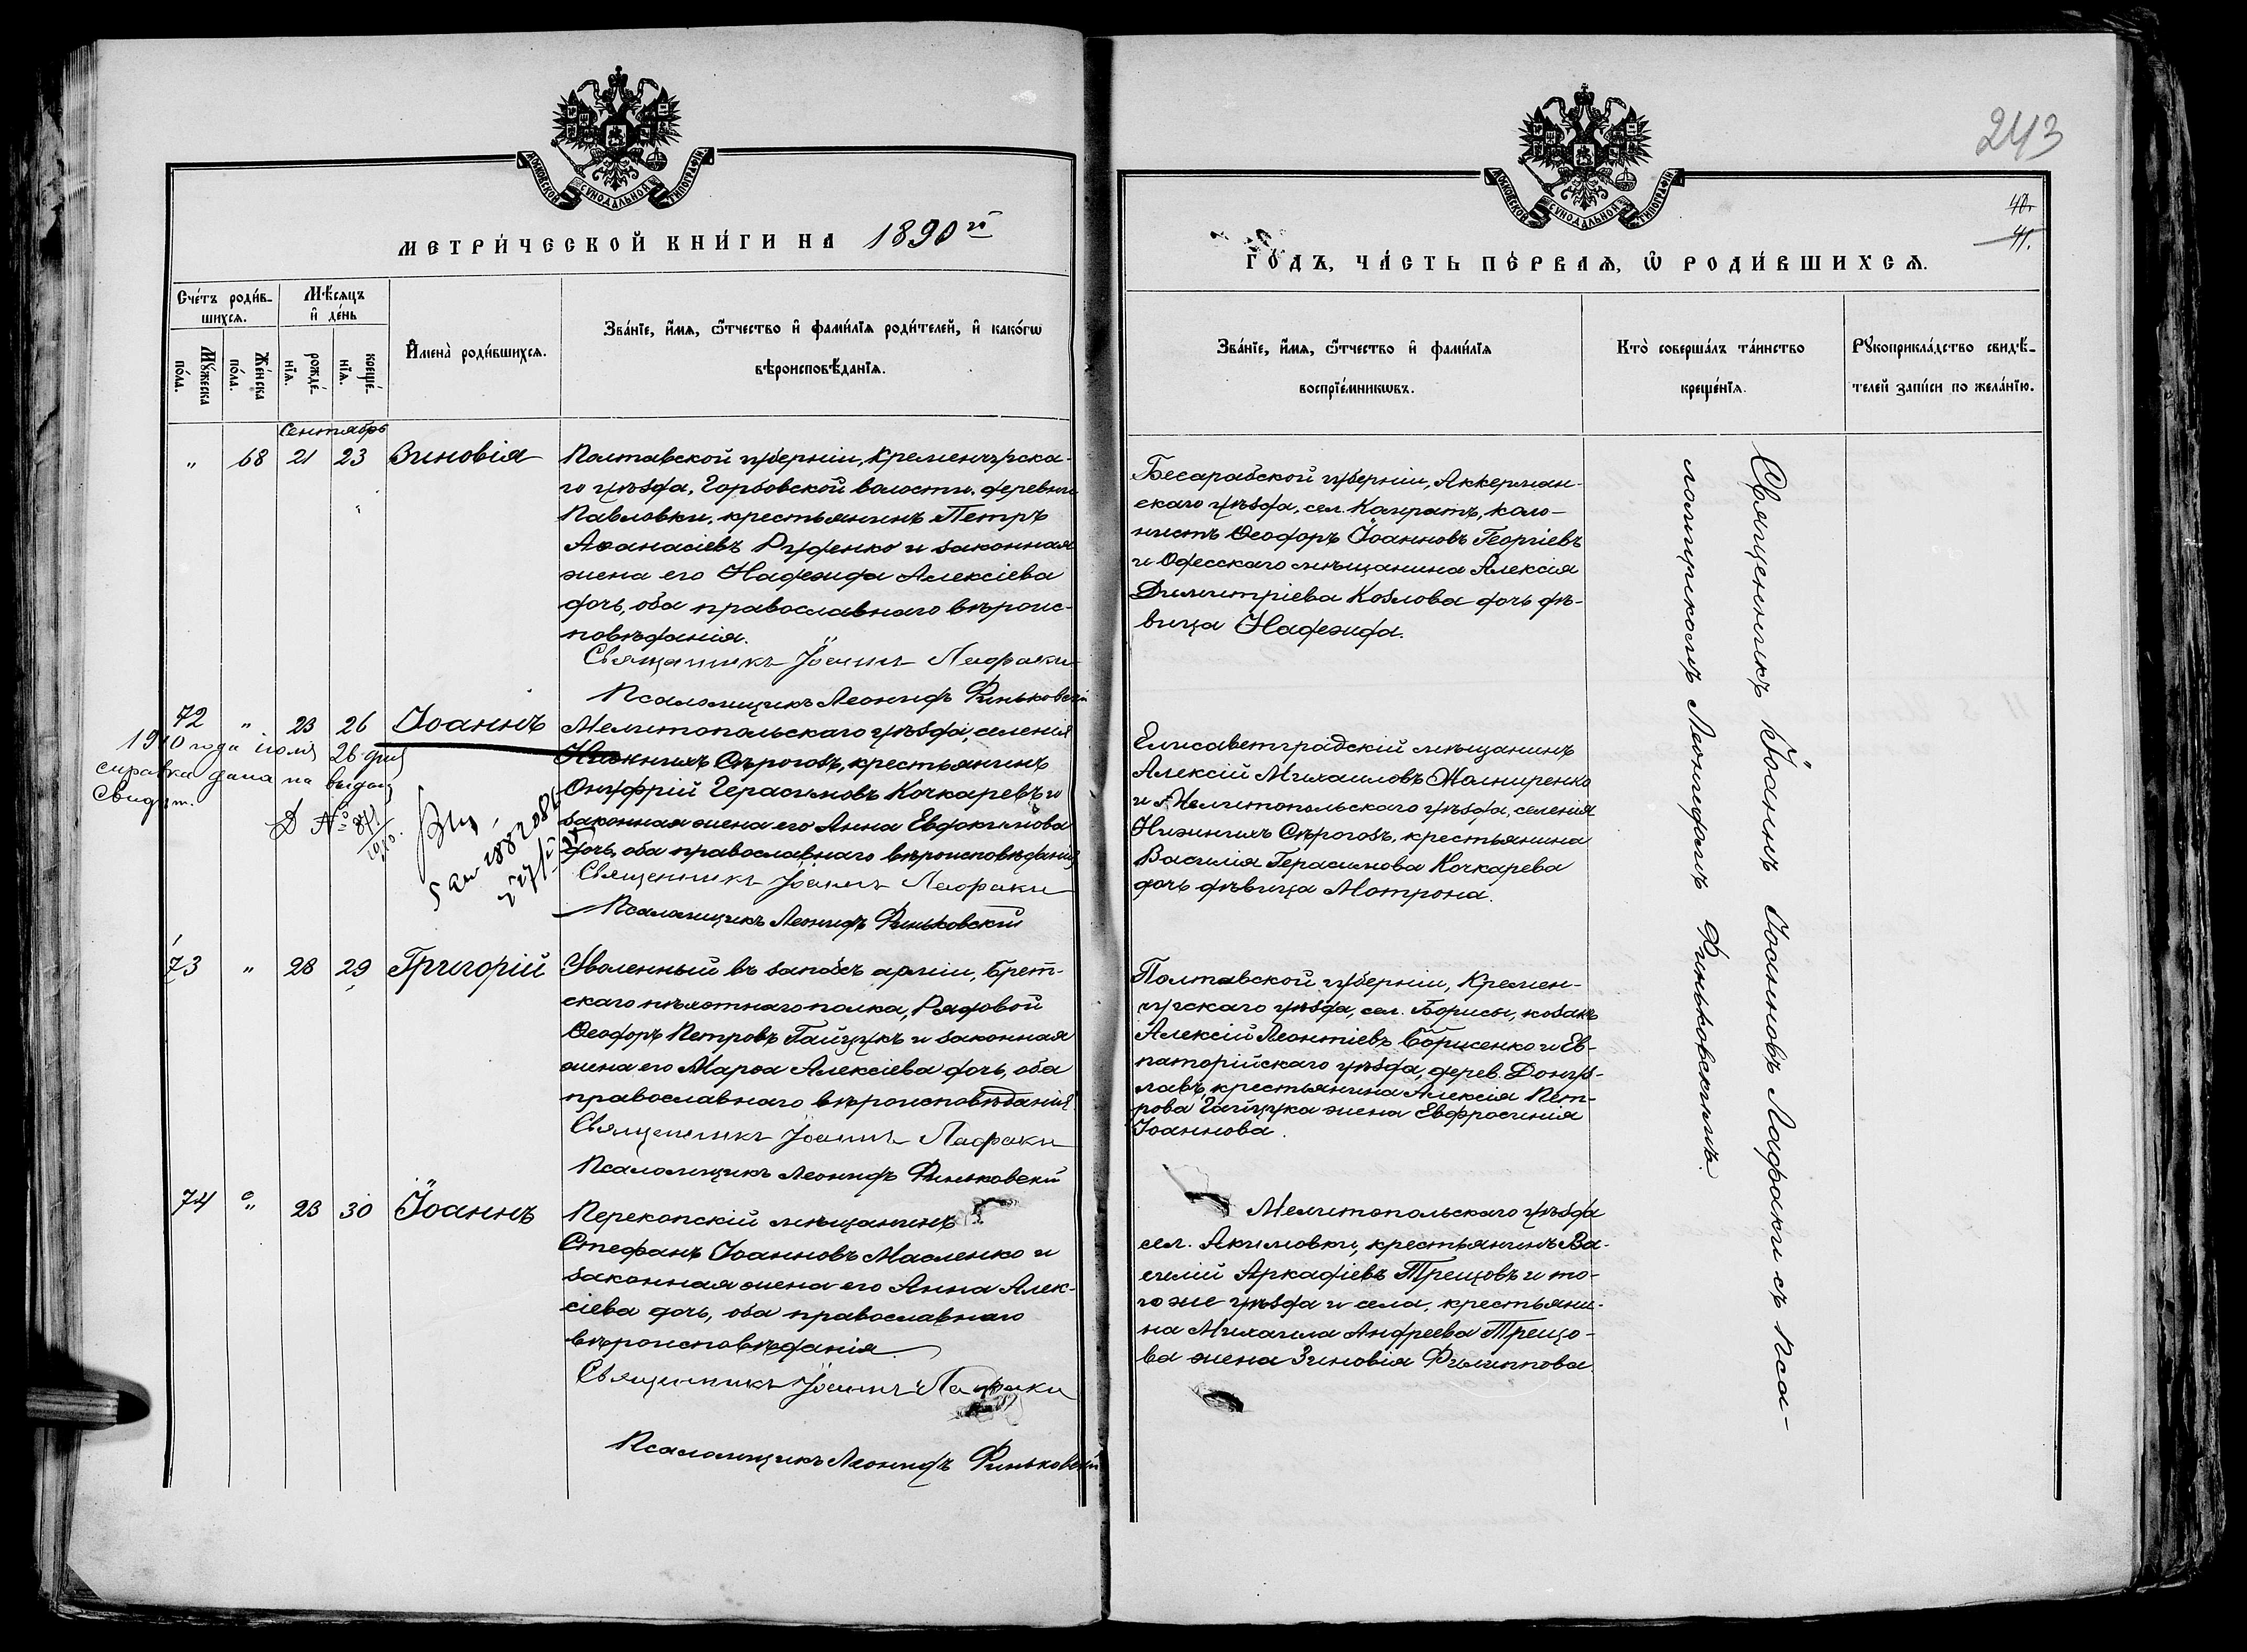 МОСКОВСКОЙ СѴНОДАЛЬНОЙ ТИПОГРАФІИ
МЕТРИ́ЧЕСКОЙ КНИ́ГИ НА 1890й
Сче́тъ роди́в-
шихсѧ.
Мѣ́сѧцъ
и҆ де́нь
Мꙋ́жеска
по́ла.
Же́нска
по́ла.
рожде́-
нїѧ.
креще́-
нїѧ.
И҆мена̀ роди́вшихсѧ.
Зва́нїе, и҆́мѧ, ѻ҆́тчество и҆ фами́лїѧ роди́телей, и҆ како́гѡ
вѣроисповѣ́данїѧ.
Сентябрь
" 68 21 23 Зиновія
Полтавской губерніи, Кременчугска-
го уѣзда, Горбовской волости, деревни
Павловки, крестьянинъ Петръ
Аѳанасіевъ Руденко и законная
жена его Надежда Алексіева
дочь, оба православнаго вѣроис-
повѣданія.
Священникъ Іоаннъ Лафаки
Псаломщикъ Леонидъ Финьковскій
72 " 23 26 Іоаннъ
Мелитопольскаго уѣзда, селенія
Нижнихъ Сѣрогозъ, крестьянинъ
Онуфрій Герасимовъ Кочкаревъ и
законная жена его Анна Евдокимова
дочь, оба православнаго вѣроисповѣданія
Священникъ Іоаннъ Лафаки
Псаломщикъ Леонидъ Финьковскій
1910 года іюля 26 дня
справка дана на выдачу
свидѣт.
Д № 871
1910.
73 " 28 29 Григорій
Уволенный въ запасъ арміи, Брест-
скаго пѣхотнаго полка, Рядовой
Ѳеодоръ Петровъ Гайдукъ и законная
жена его Марѳа Алексіева дочь, оба
православнаго вѣроисповѣданія
Священникъ Іоаннъ Лафаки
Псаломщикъ Леонидъ Финьковскій
74 " 23 30 Іоаннъ
Перекопскій мѣщанинъ
Стефанъ Іоанновъ Масленко и
законная жена его Анна Алек-
сіева дочь, оба православнаго
вѣроисповѣданія
Священникъ Іоаннъ Лафаки
Псаломщикъ Леонидъ Финьковскій
243
МОСКОВСКОЙ СѴНОДАЛЬНОЙ ТИПОГРАФІИ
40.
41.
ГО́ДЪ, ЧА́СТЬ ПЕ́РВАѦ, Ѡ҆ РОДИ́ВШИХСѦ.
Зва́нїе, и҆́мѧ, ѻ҆́тчество и҆ фами́лїѧ
воспрїе́мникѡвъ.
Кто̀ соверша́лъ та́инство
креще́нїѧ.
Рꙋкоприкла́дство свидѣ́-
телей за́писи по жела́нїю.
Бесарабской губерніи, Аккерман-
скаго уѣзда, сел. Каиратъ, коло-
нистъ Ѳеодоръ Іоанновъ Георгіевъ
и Одесскаго мѣщанина Алексія
Димитріева Козлова дочь дѣ-
вица Надежда.
Елисаветградскій мѣщанинъ
Алексій Михаиловъ Жолниренко
и Мелитопольскаго уѣзда, селенія
Нижнихъ Сѣрогозъ, крестьянина
Василія Герасимова Кочкарева
дочь дѣвица Мотрона.
Полтавской губерніи, Кремен-
чугскаго уѣзда, сел. Борисы, козакъ
Алексій Леонтіевъ Борисенко и Ев-
паторійскаго уѣзда, дерев. Донуз-
лавъ, крестьянина Алексія Пет-
рова Гайдука жена Евфросинія
Іоаннова.
Мелитопольскаго уѣзда
сел. Акимовки, крестьянинъ Ва-
силій Аркадіевъ Трещовъ и то-
го же уѣзда и села, крестьяни-
на Михаила Андреева Трещо-
ва жена Зиновія Филиппова.
Священникъ Іоаннъ Іоанновъ Лафаки съ пса-
ломщикомъ Леонидомъ Финьковскимъ.